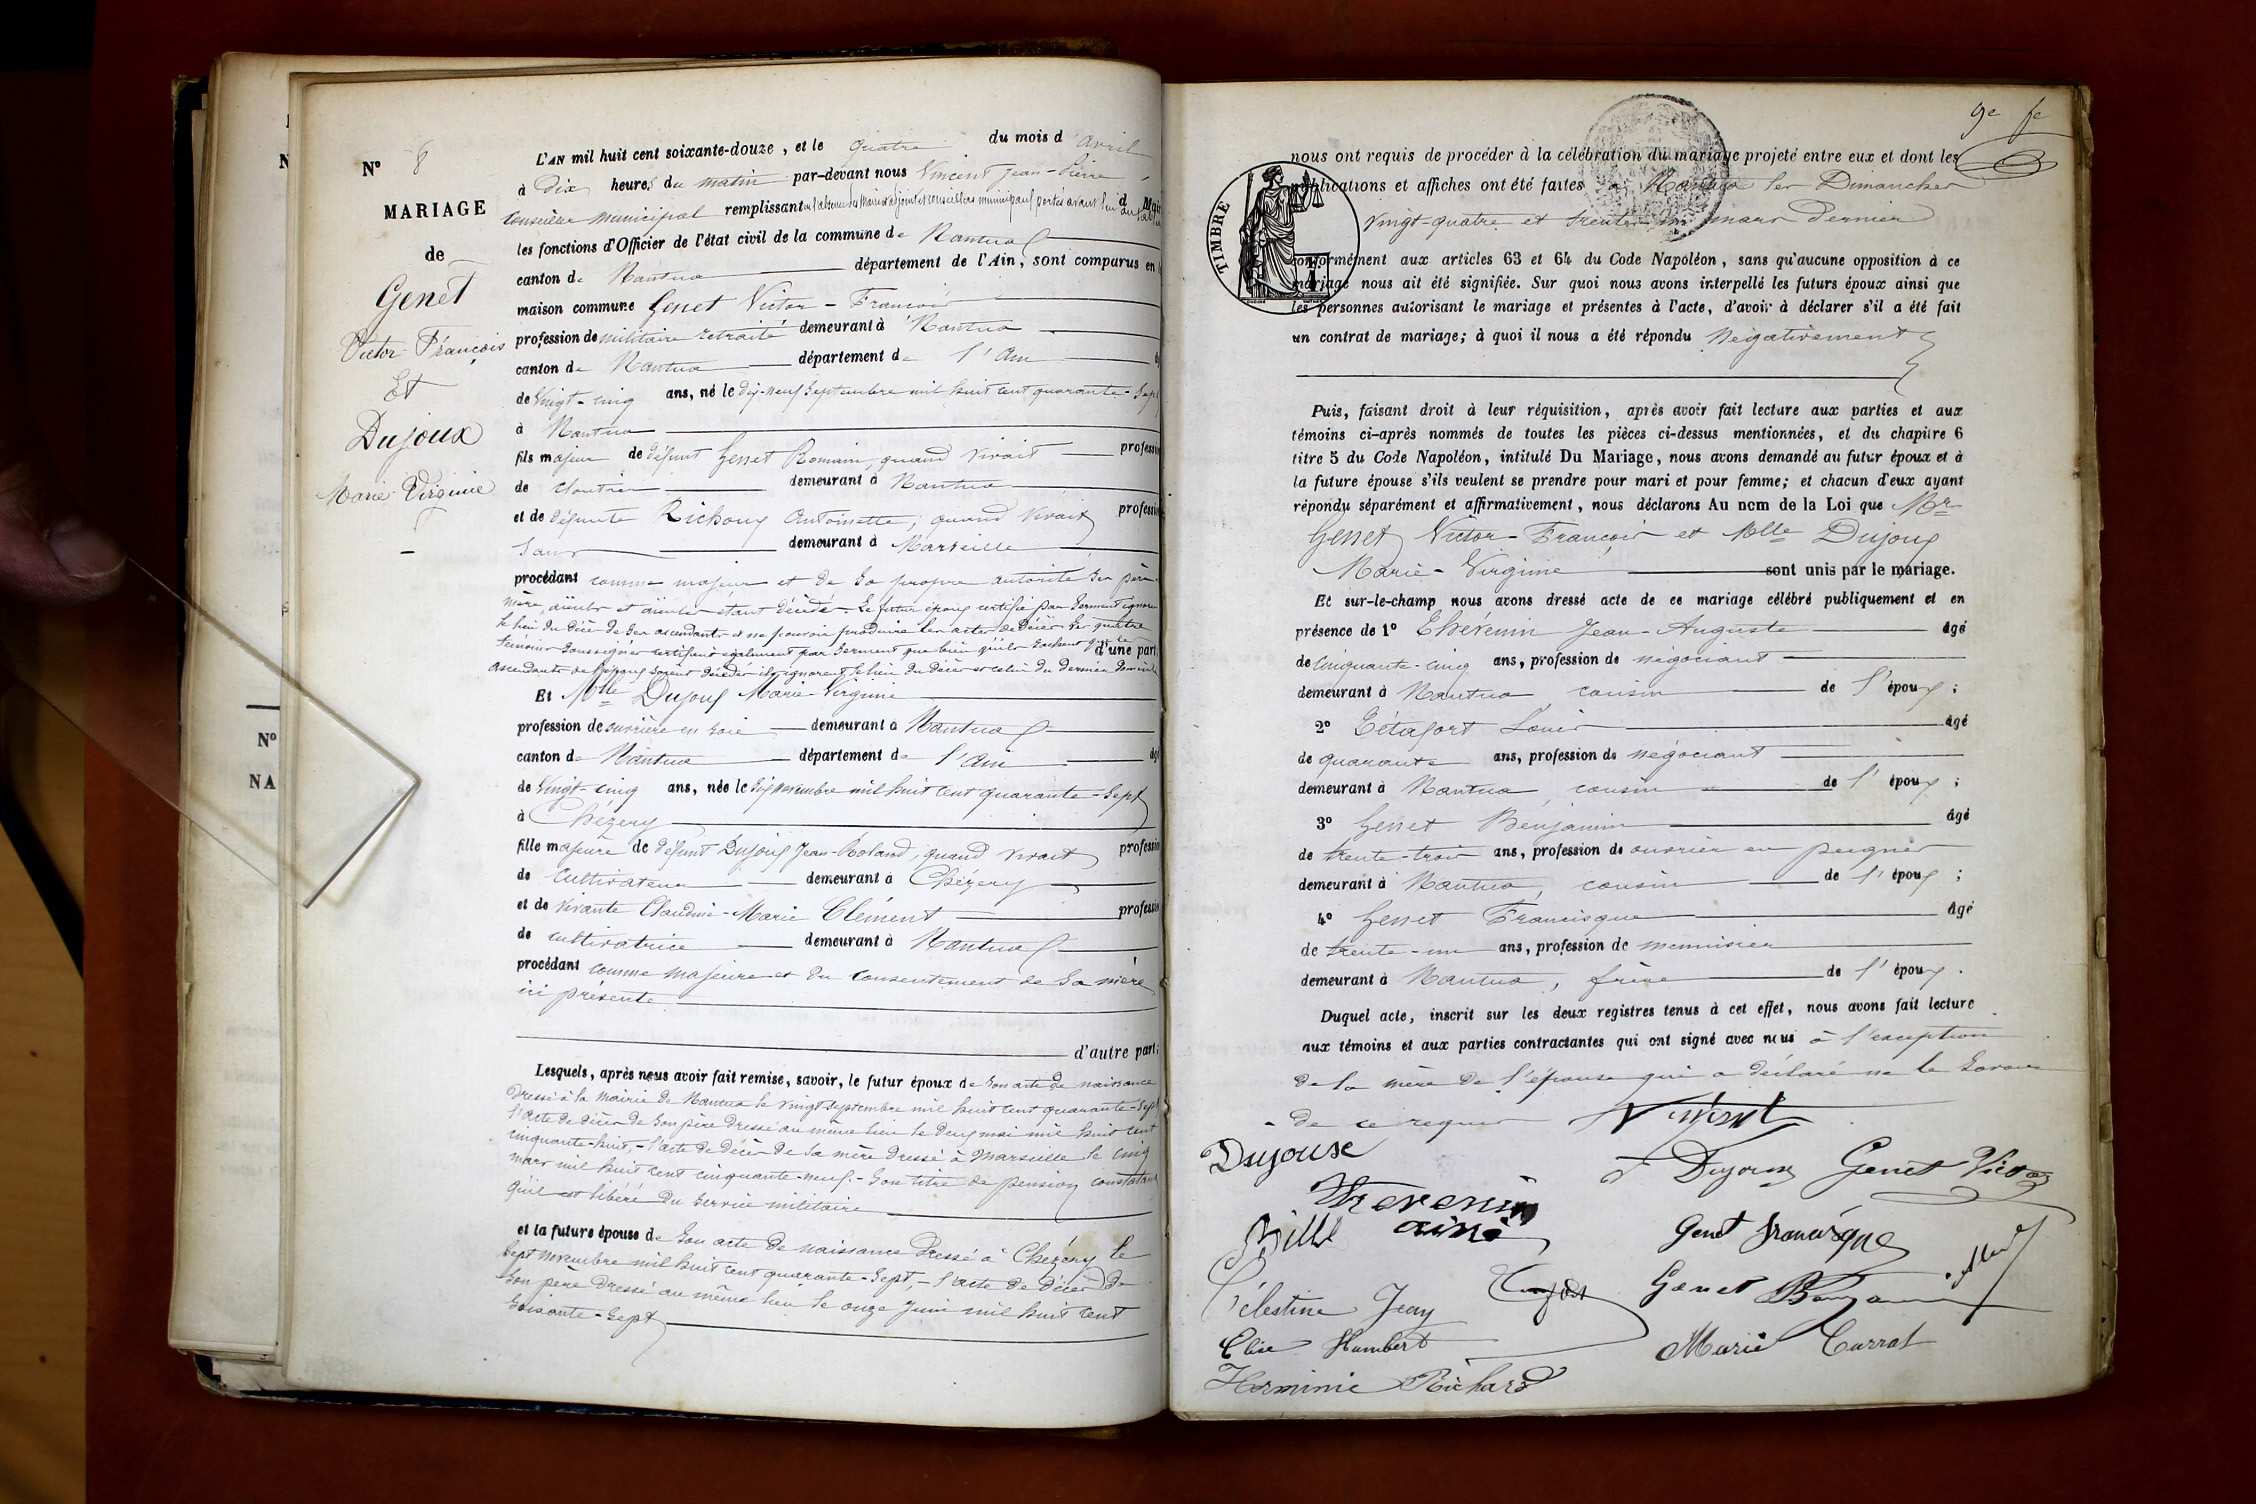 N° 8
MARIAGE
de
Genet
Victor François
Et
Dujoux
Marie Virginie
L'AN mil huit cent soixante-douze, et le quatre du mois d'avril
à Dix heures du matin par-devant nous Vincent Jean-Pierre
Conseiller municipal remplissant en l'absence des Maire adjoint et conseillers municipaux portés avant lui au tableau
les fonctions d'Officier de l'état civil de la commune de Nantua
canton de Nantua département de l'Ain, sont comparus en
maison commune Genet Victor-François
profession de militaire retraité demeurant à Nantua
canton de Nantua département de l'Ain
de Vingt-cinq ans, né le dix-neuf Septembre mil huit cent quarante-Sept
à Nantua
fils majeur de défunt Genet Romain, quand vivait profession
de cloutier demeurant à Nantua
et de défunte Richoux Antoinette, quand vivait profession
Sans demeurant à Marseille
procédant comme majeur et de Sa propre autorité Ses père
mère, aïeuls et aïeules étant décédés. Le futur époux certifie par Serment ignorer
le lieu du décès de Ses ascendants et ne pouvoir produire les actes de décès. Les quatre
témoins Soussignés certifient également par Serment que bien qu'ils Sachent que les d'une part,
ascendants de l'époux Soient décédés ils ignorent le lieu du décès et celui du dernier domicile
Et Mlle Dujoux Marie Virginie
profession de ouvrière en Soie demeurant à Nantua
canton de Nantua département de l'Ain âgé
de Vingt-cinq ans, née le Six novembre mil huit cent quarante-Sept
à Chézery
fille majeure de défunt Dujoux Jean-Roland, quand vivait profession
de Cultivateur demeurant à Chézery
et de vivante Claudine-Marie Clément profession
de cultivatrice demeurant à Nantua
procédant comme majeure et du consentement de Sa mère
ici présente
d'autre part;
Lesquels, après nous avoir fait remise, savoir, le futur époux de Son acte de naissance
dressé à la Mairie de Nantua le vingt Septembre mil huit cent quarante-Sept
l'acte de décès de Son père dressé au même lieu le deux mai mil huit cent
cinquante-huit,- l'acte de décès de Sa mère dressé à Marseille le cinq
mars mil huit cent cinquante-neuf.- Son titre de pension constatant
qu'il est libéré du Service militaire
et la future épouse de Son acte de naissance dressé à Chézery le
Sept novembre mil huit cent quarante-Sept,- l'acte de décès de
Son père dressé au même lieu le onze Juin mil huit cent
Soixante-Sept
N°
NA
9e fe
TIMBRE
nous ont requis de procéder à la célébration du mariage projeté entre eux et dont les
publications et affiches ont été faites à Nantua les Dimanches
Vingt-quatre et trente un mars dernier
conformément aux articles 63 et 64 du Code Napoléon, sans qu'aucune opposition à ce
mariage nous ait été signifiée. Sur quoi nous avons interpellé les futurs époux ainsi que
les personnes autorisant le mariage et présentes à l'acte, d'avoir à déclarer s'il a été fait
un contrat de mariage; à quoi il nous a été répondu Négativement
Puis, faisant droit à leur réquisition, après avoir fait lecture aux parties et aux
témoins ci-après nommés de toutes les pièces ci-dessus mentionnées, et du chapitre 6
titre 5 du Code Napoléon, intitulé Du Mariage, nous avons demandé au futur époux et à
la future épouse s'ils veulent se prendre pour mari et pour femme; et chacun d'eux ayant
répondu séparément et affirmativement, nous déclarons Au nom de la Loi que Mr
Genet Victor-François et Mlle Dujoux
Marie-Virginie sont unis par le mariage.
Et sur-le-champ nous avons dressé acte de ce mariage célébré publiquement et en
présence de 1° Thévenin Jean-Auguste âgé
de Cinquante-cinq ans, profession de négociant
demeurant à Nantua cousin de l'époux;
2° Tétafort Louis âgé
de quarante ans, profession de négociant
demeurant à Nantua, cousin de l'époux;
3° Genet Benjamin âgé
de trente-trois ans, profession de ouvrier en peignes
demeurant à Nantua, cousin de l'époux;
4° Genet Francisque âgé
de trente-un ans, profession de menuisier
demeurant à Nantua, frère de l'époux.
Duquel acte, inscrit sur les deux registres tenus à cet effet, nous avons fait lecture
aux témoins et aux parties contractantes qui ont signé avec nous à l'exception
de la mère de l'épouse qui a déclaré ne le Savoir
de ce requis Vincent
Dujoux
Dujoux Genet Victor
Thevenin
ainé
Genet francisque
Genet Benjamin
Célestine Jeay
Elise Humbert
Marie Carrat
Herminie Richard